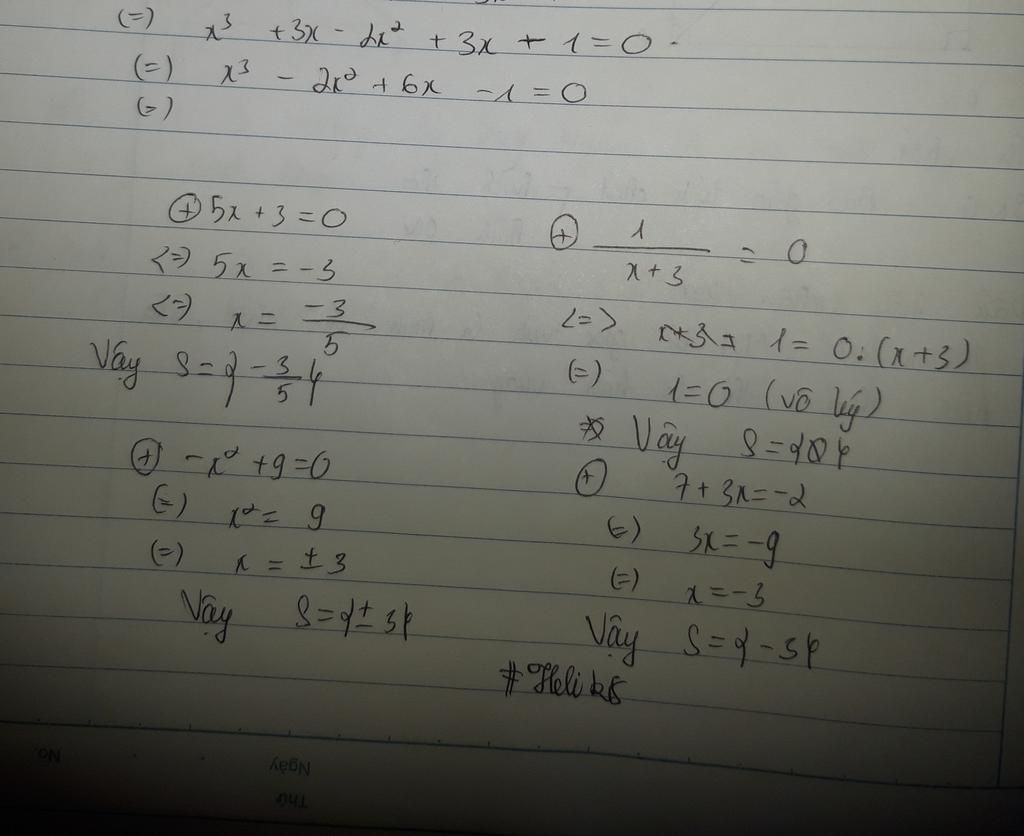 (=) x³ + 3x - 2x² + 3x + 1 = 0.
(=) x³ - 2x² + 6x - 1 = 0
(=)
⊕ 5x + 3 = 0
<=> 5x = -3
<=> x = -3/5
Vậy S = {-3/5}
⊕ -x² + 9 = 0
(=) x² = 9
(=) x = ± 3
Vậy S = {± 3}
⊕ 1/(x+3) = 0
<=> 1 = 0.(x+3)
(=) 1 = 0 (vô lý)
Vậy S = {∅}
⊕ 7 + 3x = -2
(=) 3x = -9
(=) x = -3
Vậy S = {-3}
No.
Ngày
Thứ